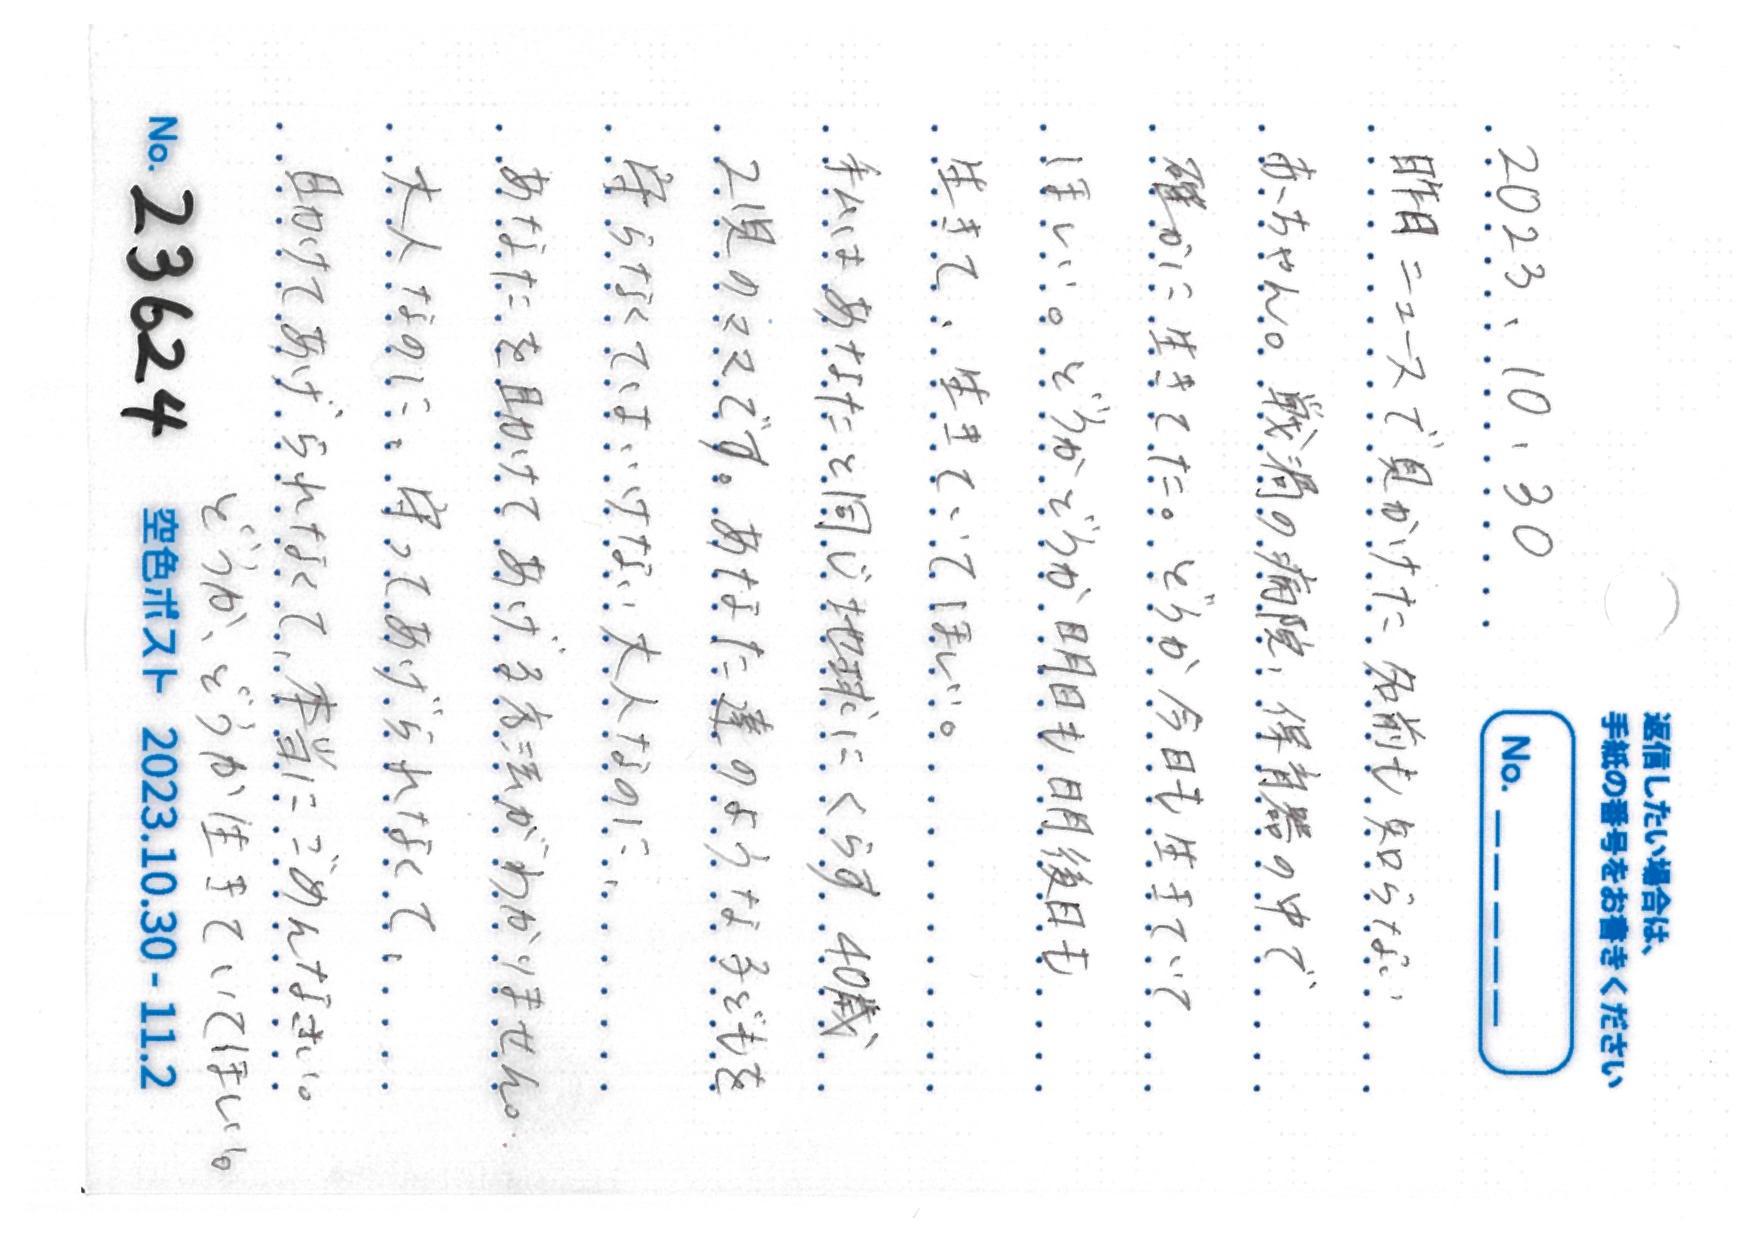 返信したい場合は、
手紙の番号をお書きください
No. _ _ _ _ _
2023、10、30
昨日ニュースで見かけた名前も知らない
赤ちゃん。戦渦の病院、保育器の中で
確かに生きてた。どうか今日も生きていて
ほしい。どうかどうか明日も明後日も
生きて、生きていてほしい。
私はあなたと同じ地球にくらす40歳
2児のママです。あなた達のような子どもを
守らなくてはいけない大人なのに、
あなたを助けてあげる方法がわかりません。
大人なのに、守ってあげられなくて、
助けてあげられなくて、本当にごめんなさい。
どうか、どうか生きていてほしい。
No. 23624 空色ポスト 2023.10.30 - 11.2